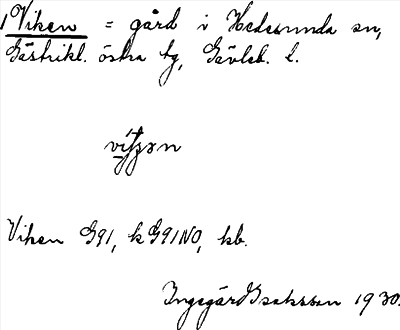 1 Viken = gård i Hedesunda sn,
Gästrikl. östra tg, Gävleb. l.
Viken G91, k G91NO, kb.
Ingegärd Isaksson 1930.